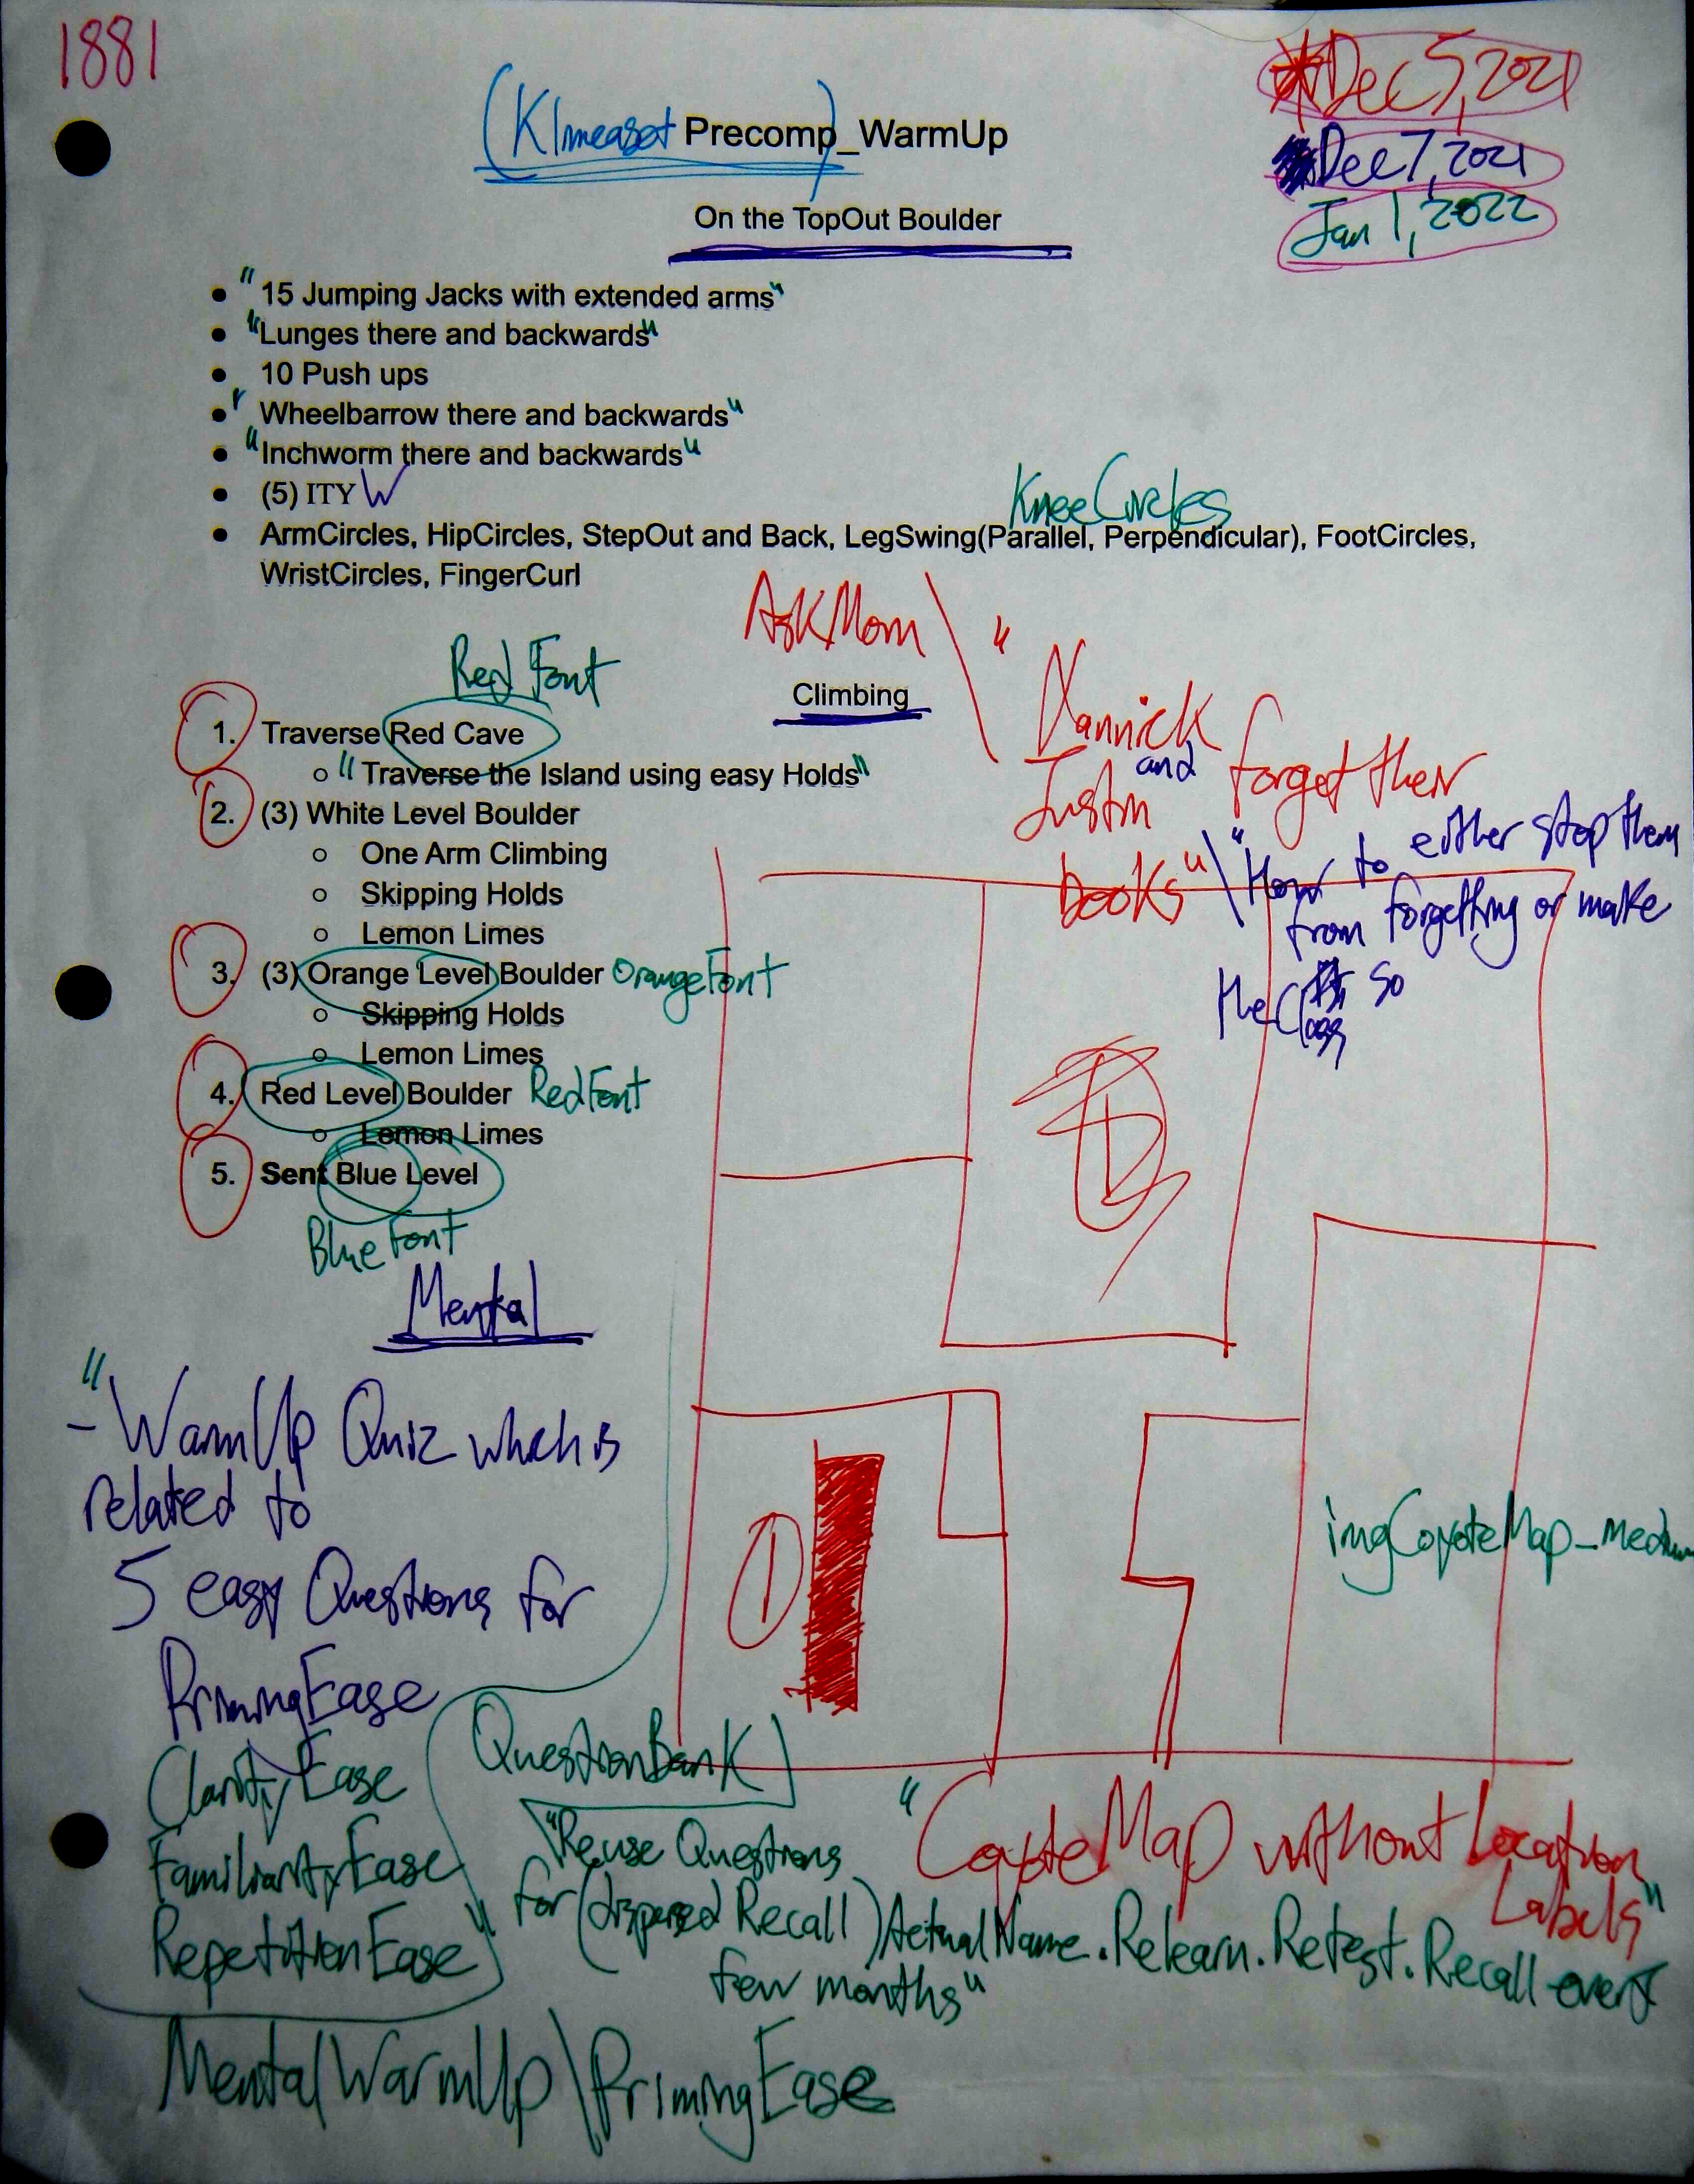 1881
Dec 5, 2021
Dec 7, 2021
Jan 1, 2022
Precomp_WarmUp
On the TopOut Boulder
• "15 Jumping Jacks with extended arms"
• "Lunges there and backwards"
• 10 Push ups
• "Wheelbarrow there and backwards"
• "Inchworm there and backwards"
• (5) ITY W
KneeCircles
• ArmCircles, HipCircles, StepOut and Back, LegSwing(Parallel, Perpendicular), FootCircles,
WristCircles, FingerCurl
AskMom \ "Yannick
and
Justin forget their
books" \ "How to either stop them
from forgetting or make
the class so
Red Font
Climbing
1. Traverse Red Cave
○ "Traverse the Island using easy Holds"
2. (3) White Level Boulder
○ One Arm Climbing
○ Skipping Holds
○ Lemon Limes
3. (3) Orange Level Boulder OrangeFont
○ Skipping Holds
○ Lemon Limes
4. Red Level Boulder RedFont
○ Lemon Limes
5. Sent Blue Level
Blue Font
Mental
"
- WarmUp Quiz which is
related to
5 easy Questions for
PrimingEase
ClarityEase
FamiliarityEase
RepetitionEase"
1
imgCoyoteMap_medium
QuestionBank
"Reuse Questions
for (dispersed Recall) ActualName.Relearn.Retest.Recall over
few months"
"CoyoteMap without Location
Labels"
MentalWarmUp\PrimingEase